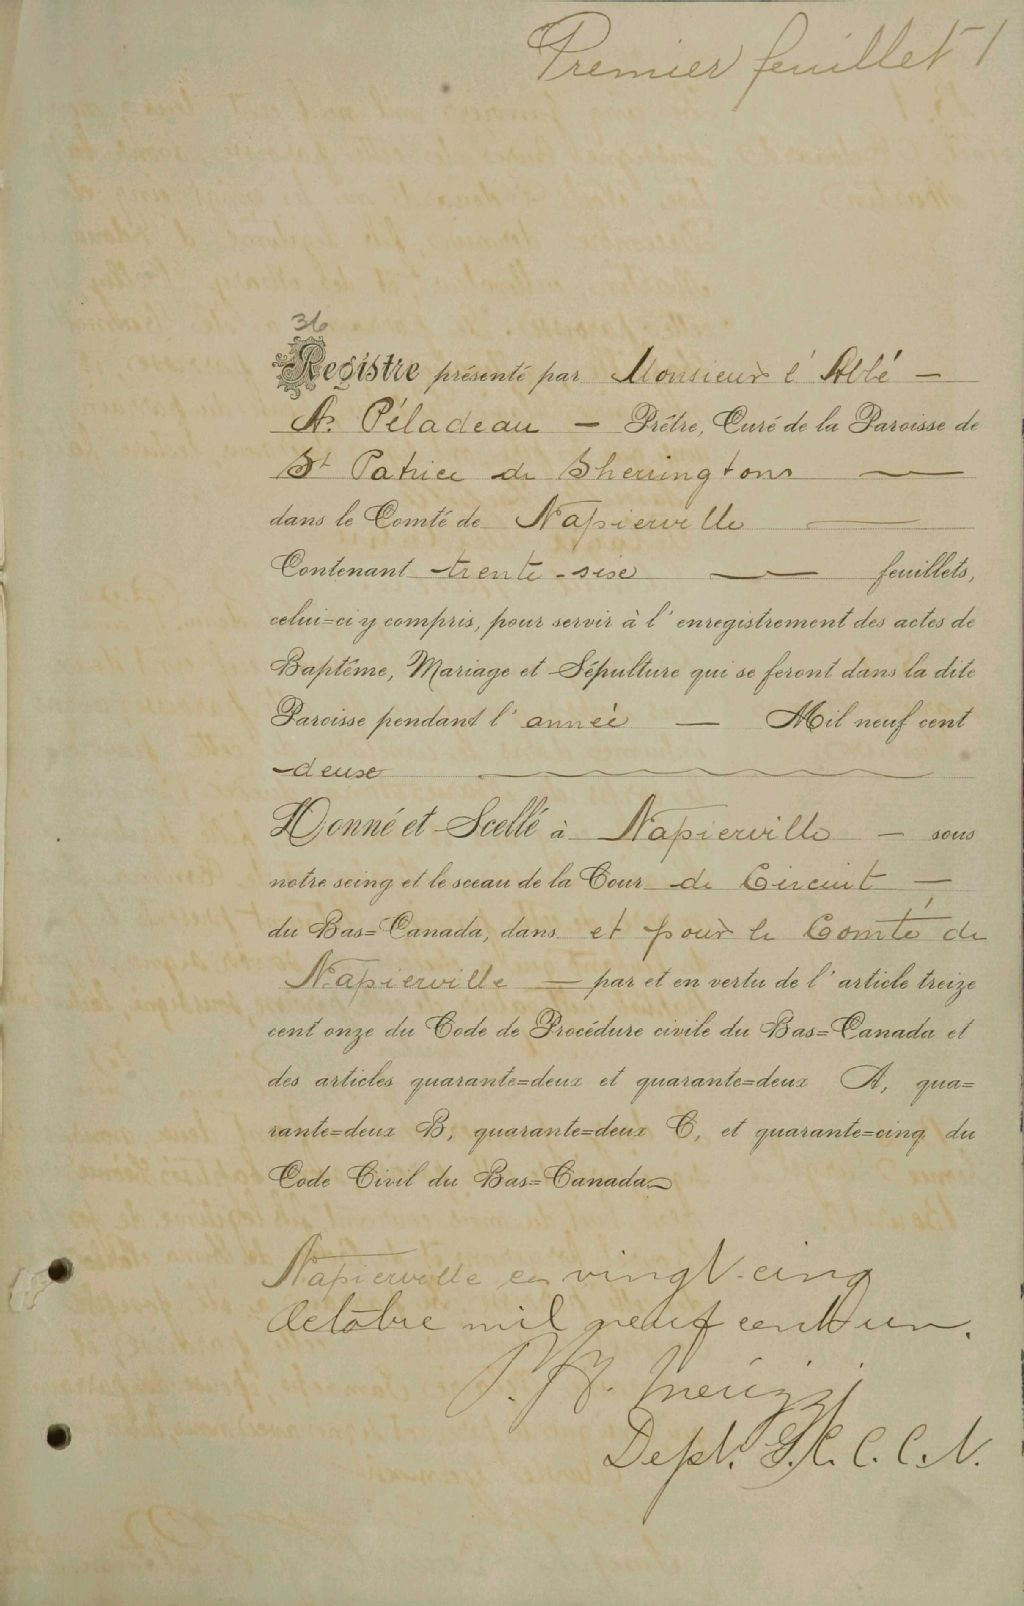 Premier feuillet 1
36
Registre présenté par Monsieur l'Abbé —
A. Péladeau — Prêtre, Curé de la Paroisse de
St Patrice de Sherrington —
dans le Comté de Napierville —
Contenant trente-sise — feuillets,
celui=ci y compris, pour servir à l'enregistrement des actes de
Baptême, Mariage et Sépulture qui se feront dans la dite
Paroisse pendant l'année — Mil neuf cent
deuse
Donné et Scellé à Napierville — sous
notre seing et le sceau de la Cour de Circuit —
du Bas=Canada, dans et pour le Comté de
Napierville — par et en vertu de l'article treize
cent onze du Code de Procédure civile du Bas=Canada et
des articles quarante=deux et quarante=deux A, qua=
rante=deux B, quarante=deux C, et quarante=cinq du
Code Civil du Bas=Canada.
Napierville ce vingt-cinq
Octobre mil neuf cent un.
Dept. G.C.C.C.N.